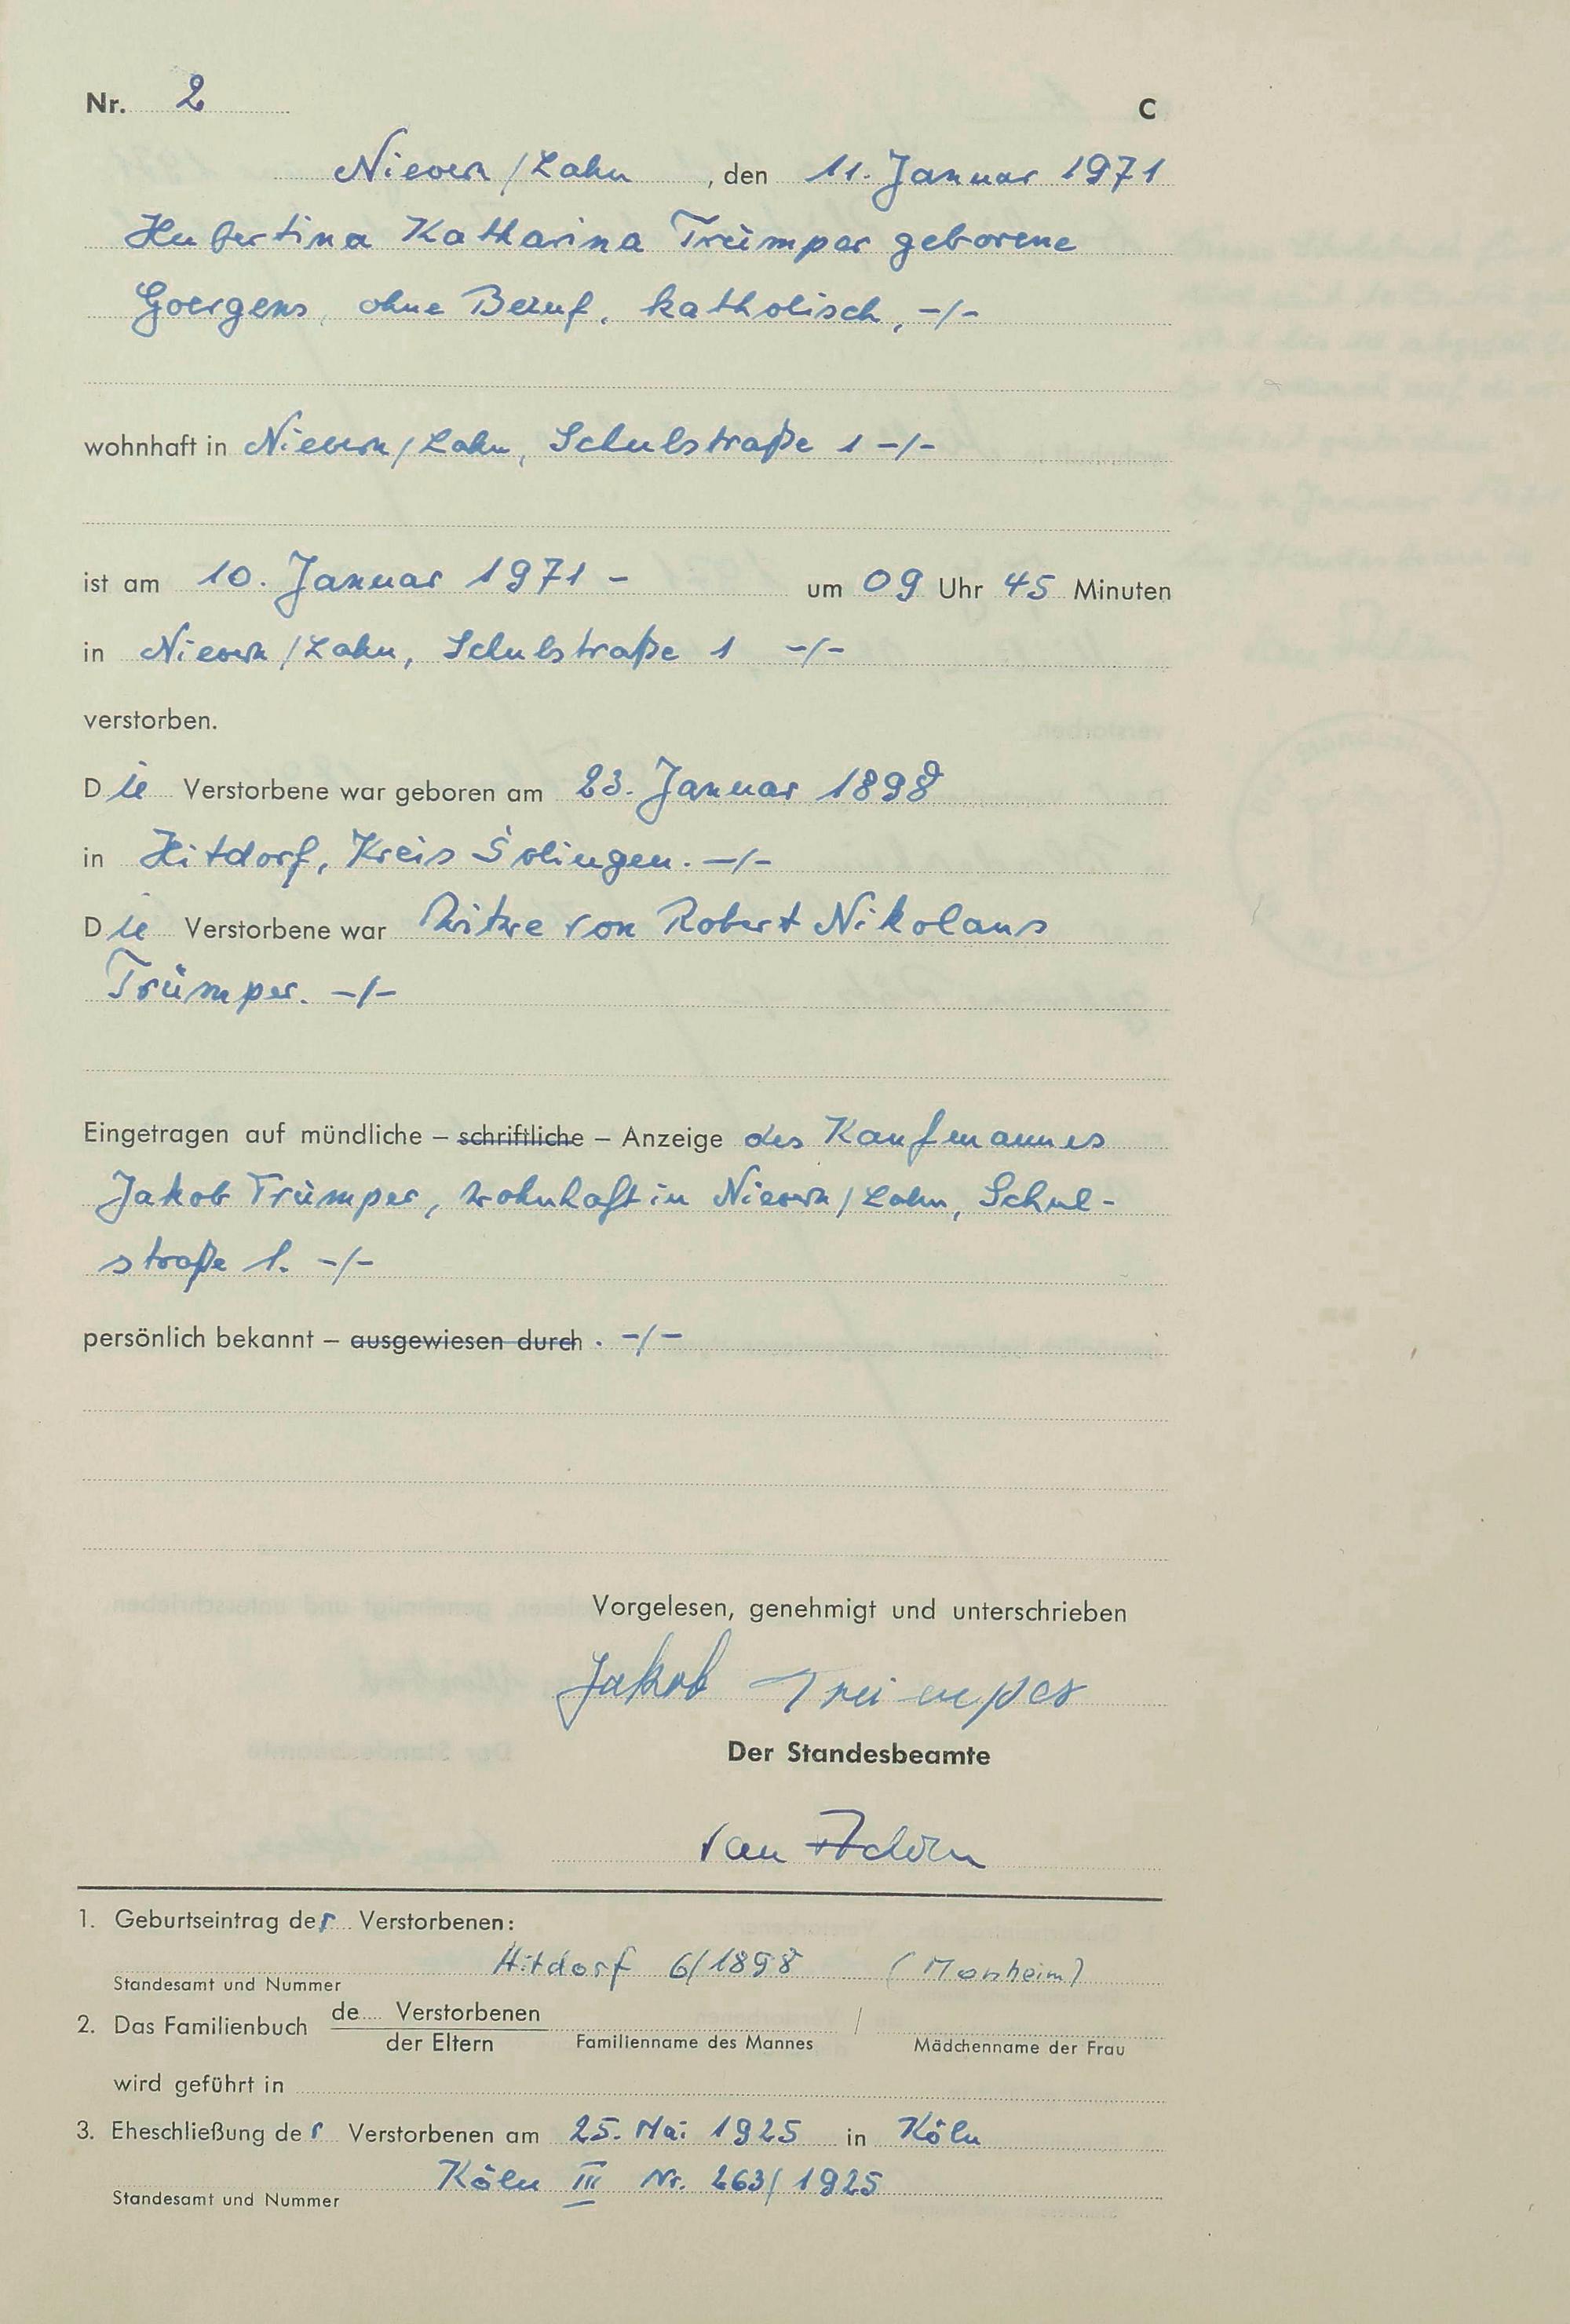 Nr. 2 C
Nievern/Lahn, den 11. Januar 1971
Hubertina Katharina Trümper geborene
Goergens, ohne Beruf, katholisch, -/-
wohnhaft in Nievern/Lahn, Schulstraße 1 -/-
ist am 10. Januar 1971 - um 09 Uhr 45 Minuten
in Nievern/Lahn, Schulstraße 1 -/-
verstorben.
Die Verstorbene war geboren am 23. Januar 1898
in Hitdorf, Kreis Solingen. -/-
Die Verstorbene war Witwe von Robert Nikolaus
Trümper. -/-
Eingetragen auf mündliche – schriftliche – Anzeige des Kaufmannes
Jakob Trümper, wohnhaft in Nievern/Lahn, Schul-
straße 1. -/-
persönlich bekannt – ausgewiesen durch . -/-
Vorgelesen, genehmigt und unterschrieben
Jakob Trümper
Der Standesbeamte
van
1. Geburtseintrag der Verstorbenen:
Hitdorf 6/1898 (Monheim)
Standesamt und Nummer
2. Das Familienbuch de Verstorbenen /
der Eltern Familienname des Mannes Mädchenname der Frau
wird geführt in
3. Eheschließung der Verstorbenen am 25. Mai 1925 in Köln
Köln III Nr. 263/1925
Standesamt und Nummer